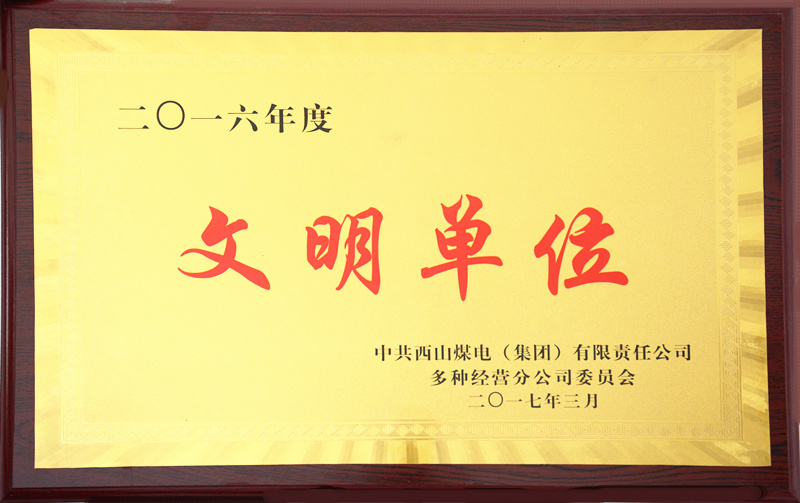 二〇一六年度
文明单位
中共西山煤电（集团）有限责任公司
多种经营分公司委员会
二〇一七年三月